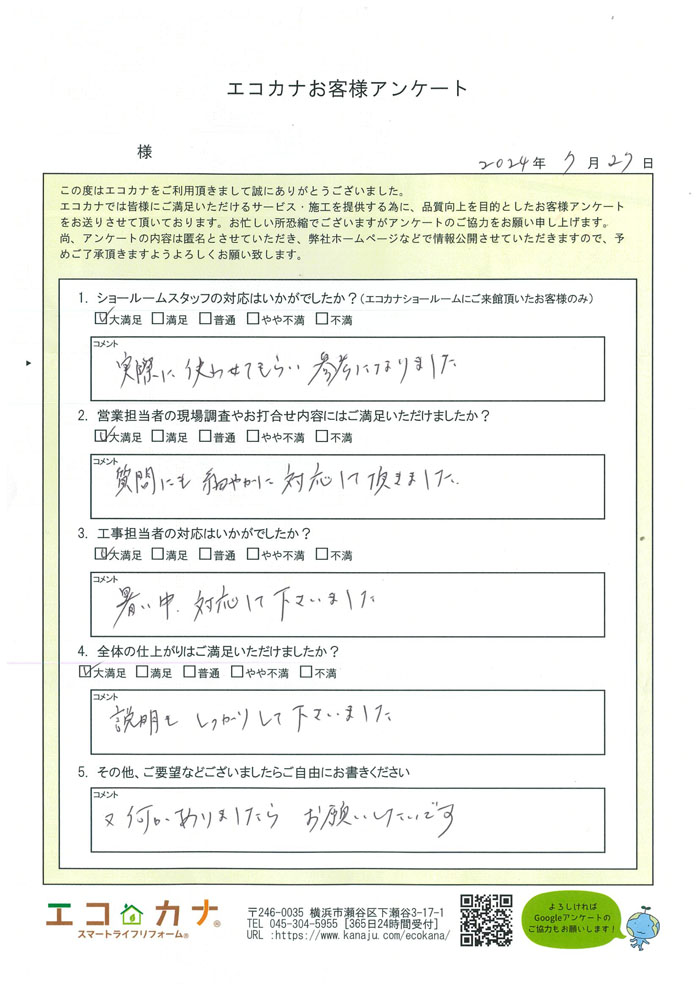 エコカナお客様アンケート
様
2024年 7月27日
この度はエコカナをご利用頂きまして誠にありがとうございました。
エコカナでは皆様にご満足いただけるサービス・施工を提供する為に、品質向上を目的としたお客様アンケート
をお送りさせて頂いております。お忙しい所恐縮でございますがアンケートのご協力をお願い申し上げます。
尚、アンケートの内容は匿名とさせていただき、弊社ホームページなどで情報公開させていただきますので、予
めご了承頂きますようよろしくお願い致します。
1. ショールームスタッフの対応はいかがでしたか？(エコカナショールームにご来館頂いたお客様のみ)
☑大満足 □満足 □普通 □やや不満 □不満
コメント
実際に使わせてもらい 参考になりました
2. 営業担当者の現場調査やお打合せ内容にはご満足いただけましたか？
☑大満足 □満足 □普通 □やや不満 □不満
コメント
質問にも 細やかに 対応して頂きました.
3. 工事担当者の対応はいかがでしたか？
☑大満足 □満足 □普通 □やや不満 □不満
コメント
暑い中、対応して下さいました
4. 全体の仕上がりはご満足いただけましたか？
☑大満足 □満足 □普通 □やや不満 □不満
コメント
説明も しっかりして下さいました
5. その他、ご要望などございましたらご自由にお書きください
コメント
又何かありましたら お願いしたいです
エコカナ®
スマートライフリフォーム®
〒246-0035 横浜市瀬谷区下瀬谷3-17-1
TEL 045-304-5955 [365日24時間受付]
URL :https://www.kanaju.com/ecokana/
よろしければ
Googleアンケートの
ご協力もお願いします！